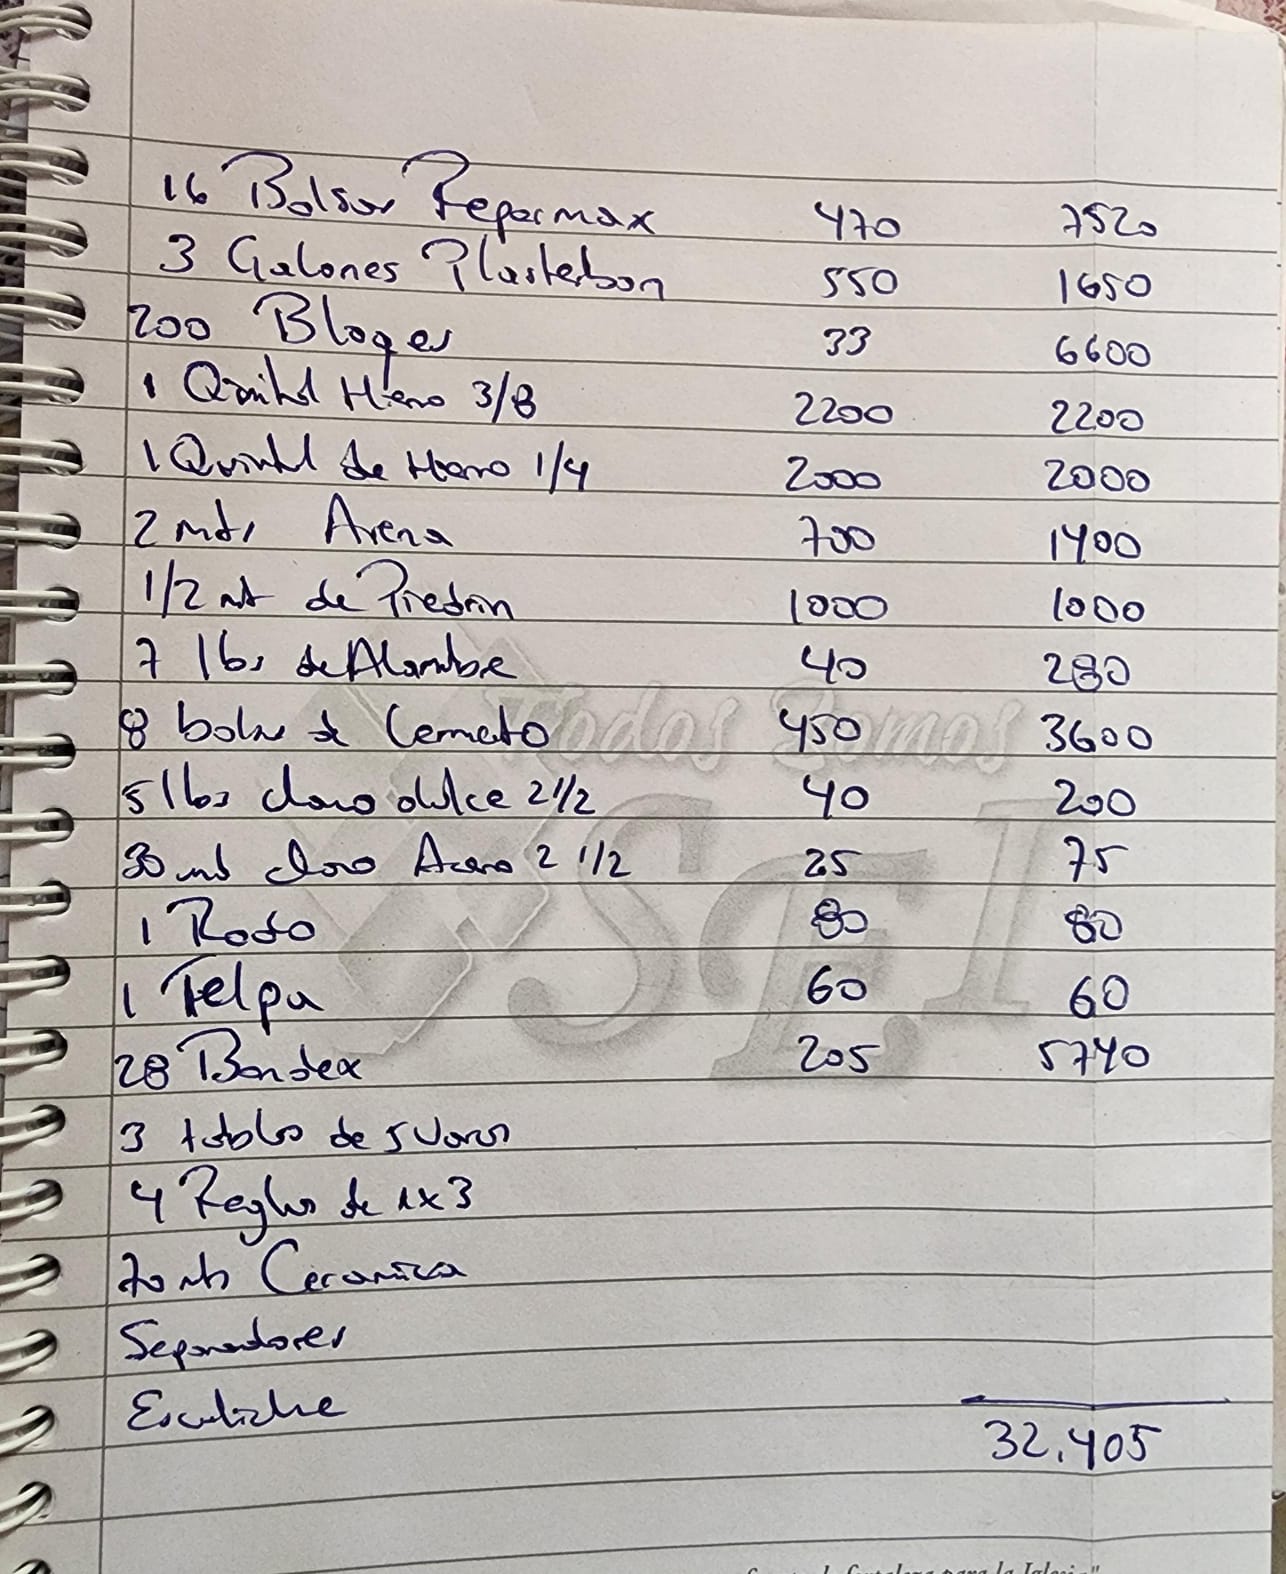 16 Bolsas Repermax 470 7520
3 Galones Plasterbon 550 1650
200 Bloqes 33 6600
1 Quintal Hierro 3/8 2200 2200
1 Quintal de Hierro 1/4 2000 2000
2 mts Arena 700 1400
1/2 mt de Piedrin 1000 1000
7 lbs de Alambre 40 280
8 bolsas de Cemeto 450 3600
5 lbs clavo dulce 2 1/2 40 200
clavo Acero 2 1/2 25 75
1 Rodo 80 80
1 Felpa 60 60
28 Bondex 205 5740
3 tablas de 5 Varas
4 Reglas de 1x3
70 mts Ceramica
Separadores
32,405
Todos Somos
SEI
para la Iglesia"